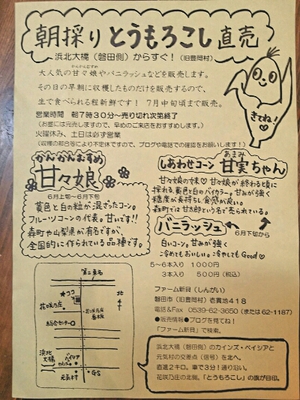 朝採りとうもろこし直売
浜北大橋(磐田側)からすぐ!(旧豊岡村)
大人気の甘々娘やバニラッシュなどを販売します。
その日の早朝に収穫したものだけを販売するので、
生で食べられる程新鮮です! 7月中旬頃まで販売。
営業時間 朝7時30分〜売り切れ次第終了
(お昼には完売しますので、早めのご来店をおすすめします)
火曜休み、土日は必ず営業
(収穫の都合等により不定休ですので、ブログや電話での確認をお願いします!)
きてね!
かんかんむすめ
甘々娘
6月上旬〜6月下旬
黄色と白の粒が混ざったコーン。
フルーツコーンの代表。甘いです!!
森町や山梨県が有名ですが、
全国的に作られている品種です。
しあわせコーン
あまみ
甘実ちゃん
甘々娘の妹♡甘々娘が終わる頃に
採れる黄色と白のバイカラー。甘みが強く
糖度が長持ちし食味が良い。
森町では甘太郎という名で売られている。
バニラッシュ
6月下旬から
白いコーン。甘みが強く
冷めてもおいしい。冷やしてもGood♡
5〜6本入り 1000円
3本入り 500円(税込)
ファーム新貝(しんがい)
磐田市(旧豊岡村)壱貫地418
電話&Fax 0539-62-3650(または62-1187)
●販売情報●ブログを見てね!
「ファーム新貝」で検索。
北
浜北大橋
浜北大橋(磐田側)のカインズ・ベイシアと
元気村の交差点(信号)を北へ。
直進2キロ。車で3分!通りぞい。
花咲乃庄の北側。「とうもろこし」の旗が目印。